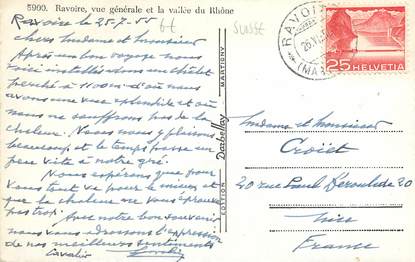 5900. Ravoire, vue générale et la vallée du Rhône
Ravoire le 25-7-55
6f
SUISSE
Chers Madame et Monsieur
Après un bon voyage nous
voici installés dans un châlet
perché à 1100m d'où nous
avons une vue splendide et où
nous ne souffrons pas de la
chaleur. Nous nous y plaisons
beaucoup et le temps passe un
peu vite à notre gré.
Nous espérons que pour
vous tout va pour le mieux et
que la chaleur ne vous éprouve
pas trop. Avec notre bon souvenir
nous vous adressons l'expression
de nos meilleurs sentiments
Cavalié
EDITION Darbellay MARTIGNY
RAVOI
25 HELVETIA
Madame et Monsieur
Croïet
20 rue Paul Déroulède 20
Nice
France